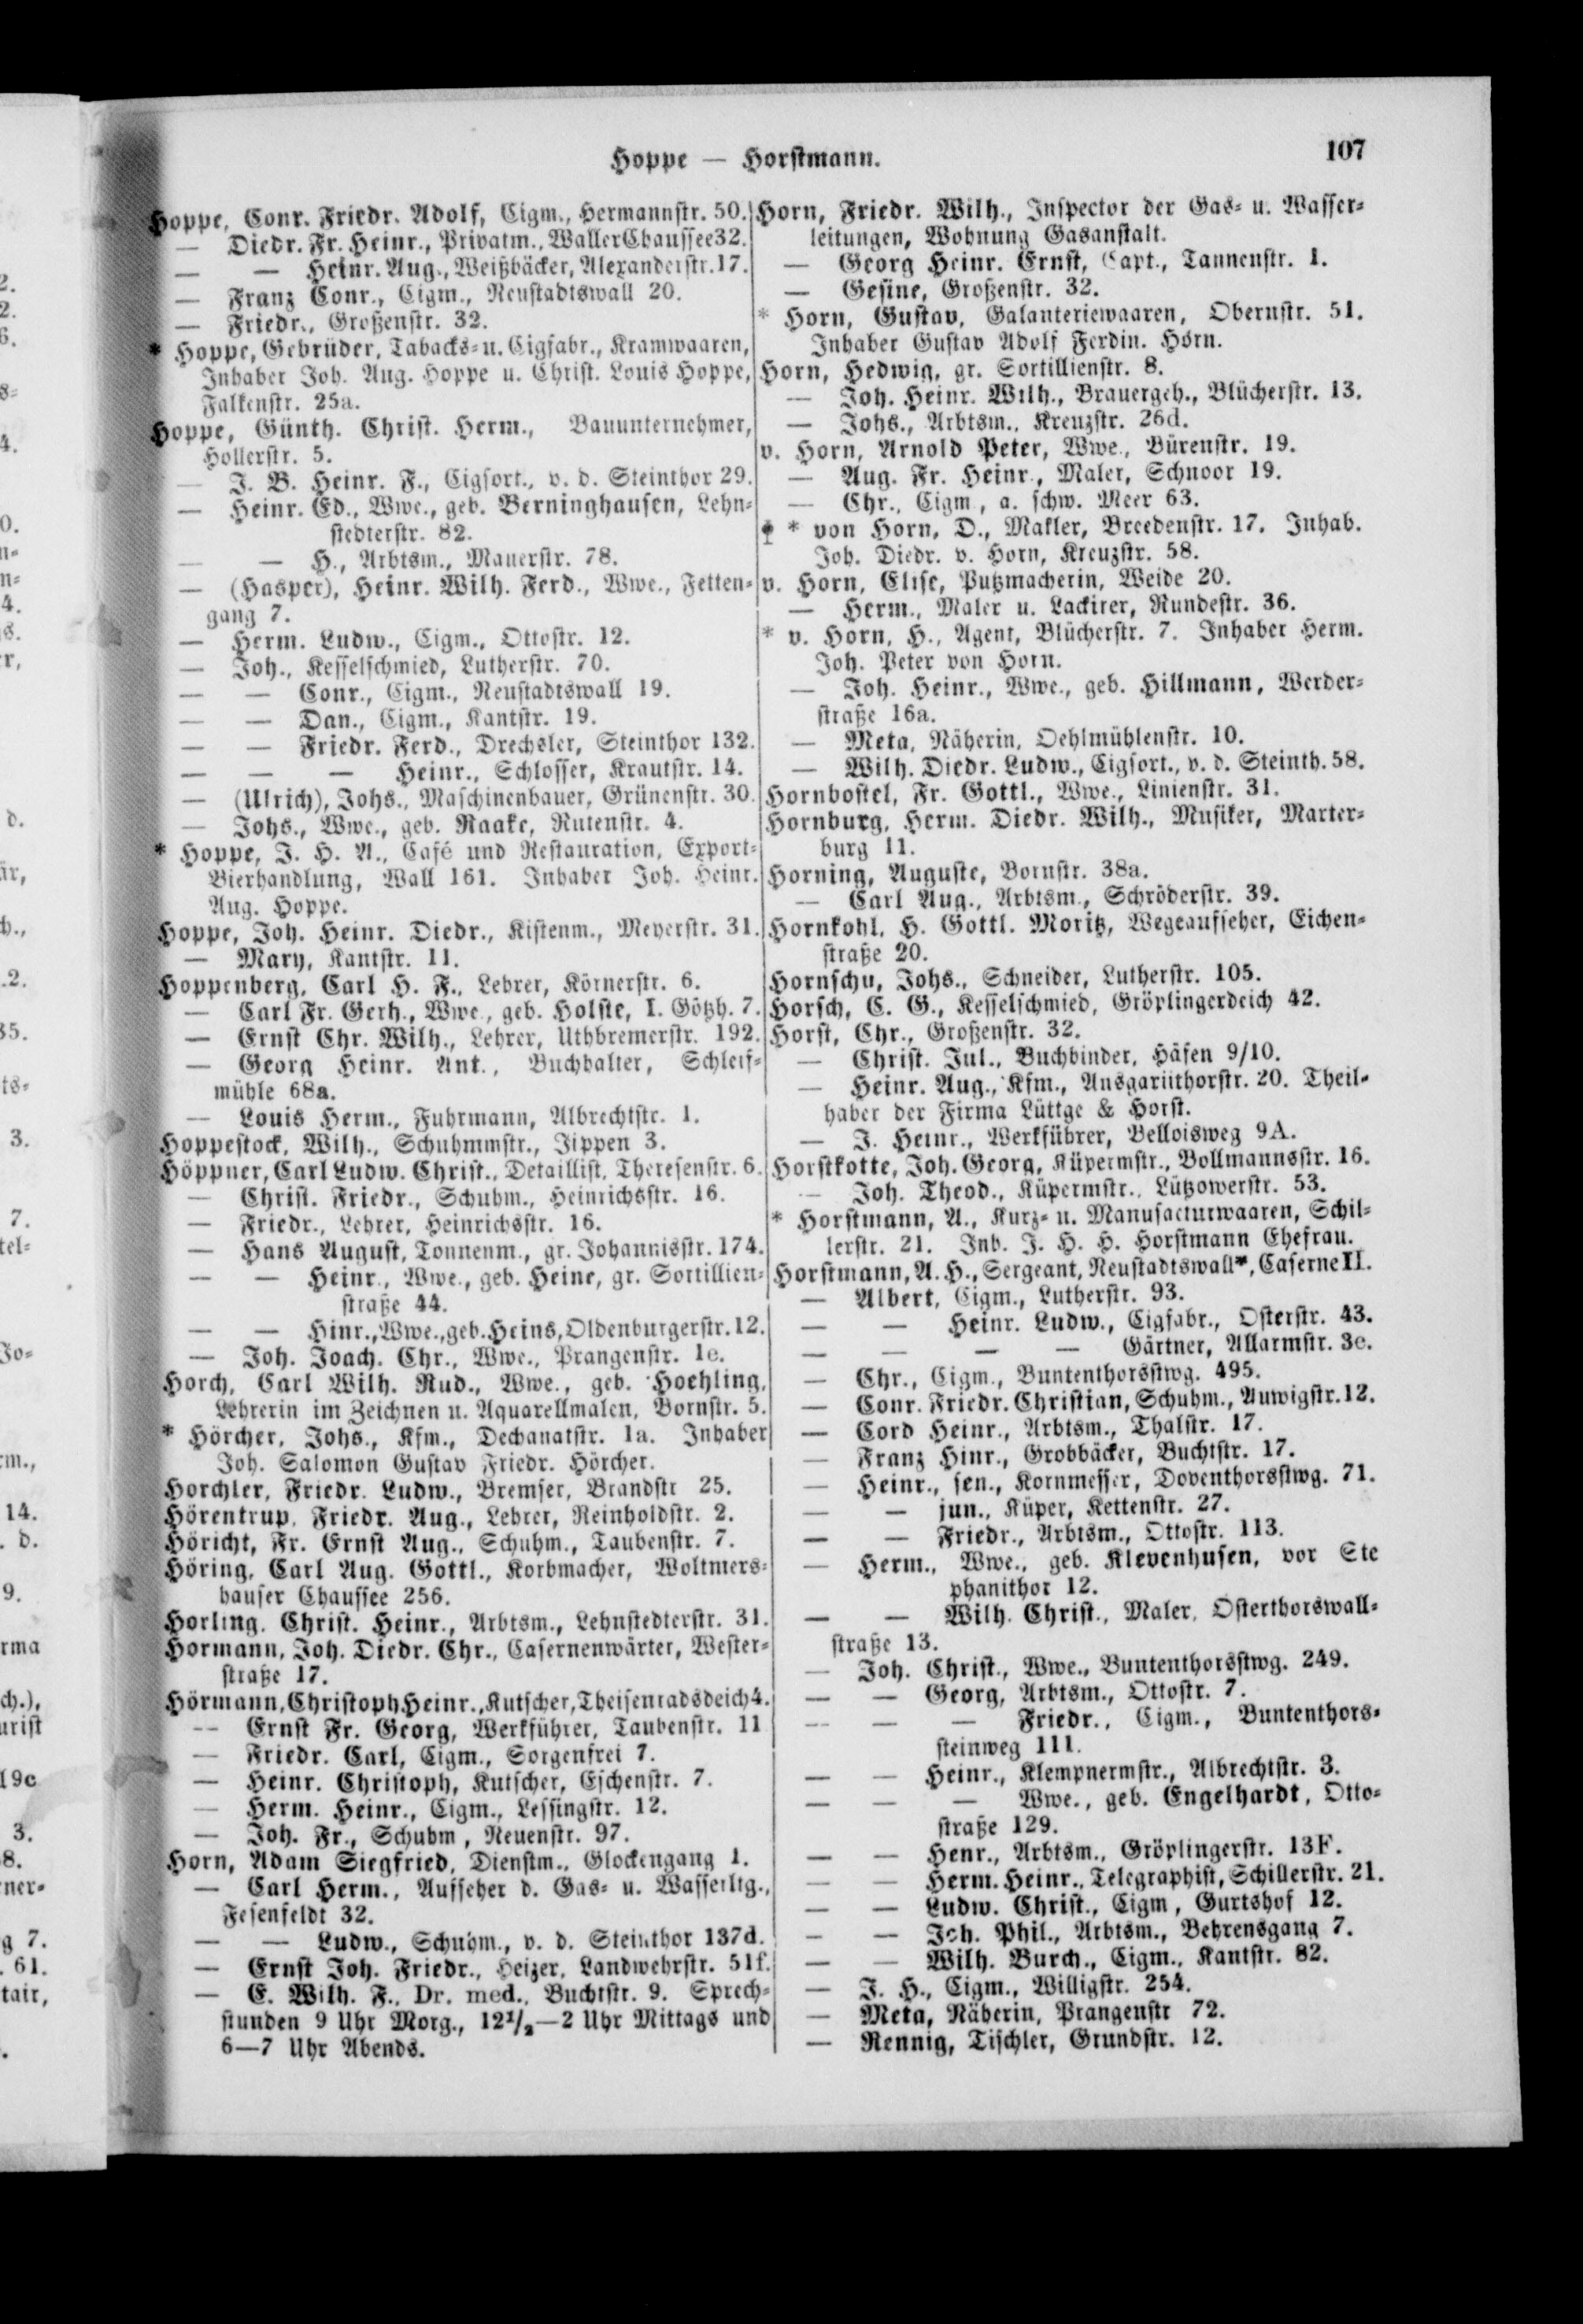 Hoppe — Horstmann.
107
Hoppe, Conr. Friedr. Adolf, Cigm., Hermannstr. 50.
— Diedr. Fr. Heinr., Privatm., Waller Chaussee 32.
— — Heinr. Aug., Weißbäcker, Alexanderstr. 17.
— Franz Conr., Cigm., Neustadtswall 20.
— Friedr., Großenstr. 32.
* Hoppe, Gebrüder, Tabacks- u. Cigfabr., Kramwaaren,
Inhaber Joh. Aug. Hoppe u. Christ. Louis Hoppe,
Falkenstr. 25a.
Hoppe, Günth. Christ. Herm., Bauunternehmer,
Hollerstr. 5.
— J. B. Heinr. F., Cigsort., v. d. Steinthor 29.
— Heinr. Ed., Wwe., geb. Berninghausen, Lehn-
stedterstr. 82.
— — H., Arbtsm., Mauerstr. 78.
— (Hasper), Heinr. Wilh. Ferd., Wwe., Fetten-
gang 7.
— Herm. Ludw., Cigm., Ottostr. 12.
— Joh., Kesselschmied, Lutherstr. 70.
— — Conr., Cigm., Neustadtswall 19.
— — Dan., Cigm., Kantstr. 19.
— — Friedr. Ferd., Drechsler, Steinthor 132.
— — — Heinr., Schlosser, Krautstr. 14.
— (Ulrich), Johs., Maschinenbauer, Grünenstr. 30.
— Johs., Wwe., geb. Raake, Rutenstr. 4.
* Hoppe, J. H. A., Café und Restauration, Export-
Bierhandlung, Wall 161. Inhaber Joh. Heinr.
Aug. Hoppe.
Hoppe, Joh. Heinr. Diedr., Kistenm., Meyerstr. 31.
— Mary, Kantstr. 11.
Hoppenberg, Carl H. F., Lehrer, Körnerstr. 6.
— Carl Fr. Gerh., Wwe., geb. Holste, I. Götzh. 7.
— Ernst Chr. Wilh., Lehrer, Uthbremerstr. 192.
— Georg Heinr. Ant., Buchhalter, Schleif-
mühle 68a.
— Louis Herm., Fuhrmann, Albrechtstr. 1.
Hoppestock, Wilh., Schuhmmstr., Jippen 3.
Höppner, Carl Ludw. Christ., Detaillist, Theresenstr. 6.
— Christ. Friedr., Schuhm., Heinrichsstr. 16.
— Friedr., Lehrer, Heinrichsstr. 16.
— Hans August, Tonnenm., gr. Johannisstr. 174.
— — Heinr., Wwe., geb. Heine, gr. Sortillien-
straße 44.
— — Hinr., Wwe., geb. Heins, Oldenburgerstr. 12.
— Joh. Joach. Chr., Wwe., Prangenstr. 1c.
Horch, Carl Wilh. Rud., Wwe., geb. Hoehling,
Lehrerin im Zeichnen u. Aquarellmalen, Bornstr. 5.
* Hörcher, Johs., Kfm., Dechanatstr. 1a. Inhaber
Joh. Salomon Gustav Friedr. Hörcher.
Horchler, Friedr. Ludw., Bremser, Brandstr 25.
Hörentrup, Friedr. Aug., Lehrer, Reinholdstr. 2.
Höricht, Fr. Ernst Aug., Schuhm., Taubenstr. 7.
Höring, Carl Aug. Gottl., Korbmacher, Woltmers-
hauser Chaussee 256.
Horling, Christ. Heinr., Arbtsm., Lehnstedterstr. 31.
Hormann, Joh. Diedr. Chr., Casernenwärter, Wester-
straße 17.
Hörmann, Christoph Heinr., Kutscher, Theisenradsdeich 4.
— Ernst Fr. Georg, Werkführer, Taubenstr. 11
— Friedr. Carl, Cigm., Sorgenfrei 7.
— Heinr. Christoph, Kutscher, Eschenstr. 7.
— Herm. Heinr., Cigm., Lessingstr. 12.
— Joh. Fr., Schuhm, Neuenstr. 97.
Horn, Adam Siegfried, Dienstm., Glockengang 1.
— Carl Herm., Aufseher d. Gas- u. Wasserltg.,
Fesenfeldt 32.
— — Ludw., Schuhm., v. d. Steinthor 137d.
— Ernst Joh. Friedr., Heizer, Landwehrstr. 51f.
— E. Wilh. F., Dr. med., Buchtstr. 9. Sprech-
stunden 9 Uhr Morg., 12½—2 Uhr Mittags und
6—7 Uhr Abends.
Horn, Friedr. Wilh., Inspector der Gas- u. Wasser-
leitungen, Wohnung Gasanstalt.
— Georg Heinr. Ernst, Capt., Tannenstr. 1.
— Gesine, Großenstr. 32.
* Horn, Gustav, Galanteriewaaren, Obernstr. 51.
Inhaber Gustav Adolf Ferdin. Horn.
Horn, Hedwig, gr. Sortillienstr. 8.
— Joh. Heinr. Wilh., Brauergeh., Blücherstr. 13.
— Johs., Arbtsm., Kreuzstr. 26d.
v. Horn, Arnold Peter, Wwe., Bürenstr. 19.
— Aug. Fr. Heinr., Maler, Schnoor 19.
— Chr., Cigm, a. schw. Meer 63.
* von Horn, D., Makler, Bredenstr. 17. Inhab.
Joh. Diedr. v. Horn, Kreuzstr. 58.
v. Horn, Elise, Putzmacherin, Weide 20.
— Herm., Maler u. Lackirer, Rundestr. 36.
* v. Horn, H., Agent, Blücherstr. 7. Inhaber Herm.
Joh. Peter von Horn.
— Joh. Heinr., Wwe., geb. Hillmann, Werder-
straße 16a.
— Meta, Näherin, Oehlmühlenstr. 10.
— Wilh. Diedr. Ludw., Cigsort., v. d. Steinth. 58.
Hornbostel, Fr. Gottl., Wwe., Linienstr. 31.
Hornburg, Herm. Diedr. Wilh., Musiker, Marter-
burg 11.
Horning, Auguste, Bornstr. 38a.
— Carl Aug., Arbtsm., Schröderstr. 39.
Hornkohl, H. Gottl. Moritz, Wegeaufseher, Eichen-
straße 20.
Hornschu, Johs., Schneider, Lutherstr. 105.
Horsch, C. G., Kesselschmied, Gröplingerdeich 42.
Horst, Chr., Großenstr. 32.
— Christ. Jul., Buchbinder, Häfen 9/10.
— Heinr. Aug., Kfm., Ansgariithorstr. 20. Theil-
haber der Firma Lüttge & Horst.
— J. Heinr., Werkführer, Belloisweg 9A.
Horstkotte, Joh. Georg, Küpermstr., Bollmannsstr. 16.
— Joh. Theod., Küpermstr., Lützowerstr. 53.
* Horstmann, A., Kurz- u. Manufacturwaaren, Schil-
lerstr. 21. Inh. J. H. H. Horstmann Ehefrau.
Horstmann, A. H., Sergeant, Neustadtswall*, Caserne II.
— Albert, Cigm., Lutherstr. 93.
— — Heinr. Ludw., Cigfabr., Osterstr. 43.
— — — — Gärtner, Allarmstr. 3c.
— Chr., Cigm., Buntenthorsstwg. 495.
— Conr. Friedr. Christian, Schuhm., Auwigstr. 12.
— Cord Heinr., Arbtsm., Thalstr. 17.
— Franz Hinr., Grobbäcker, Buchtstr. 17.
— Heinr., sen., Kornmesser, Doventhorsstwg. 71.
— — jun., Küper, Kettenstr. 27.
— — Friedr., Arbtsm., Ottostr. 113.
— Herm., Wwe., geb. Klevenhusen, vor Ste
phanithor 12.
— — Wilh. Christ., Maler, Osterthorswall-
straße 13.
— Joh. Christ., Wwe., Buntenthorsstwg. 249.
— — Georg, Arbtsm., Ottostr. 7.
— — — Friedr., Cigm., Buntenthors-
steinweg 111.
— — Heinr., Klempnermstr., Albrechtstr. 3.
— — — Wwe., geb. Engelhardt, Otto-
straße 129.
— — Henr., Arbtsm., Gröplingerstr. 13F.
— — Herm. Heinr., Telegraphist, Schillerstr. 21.
— — Ludw. Christ., Cigm, Gurtshof 12.
— — Joh. Phil., Arbtsm., Behrensgang 7.
— — Wilh. Burch., Cigm., Kantstr. 82.
— J. H., Cigm., Willigstr. 254.
— Meta, Näherin, Prangenstr 72.
— Rennig, Tischler, Grundstr. 12.